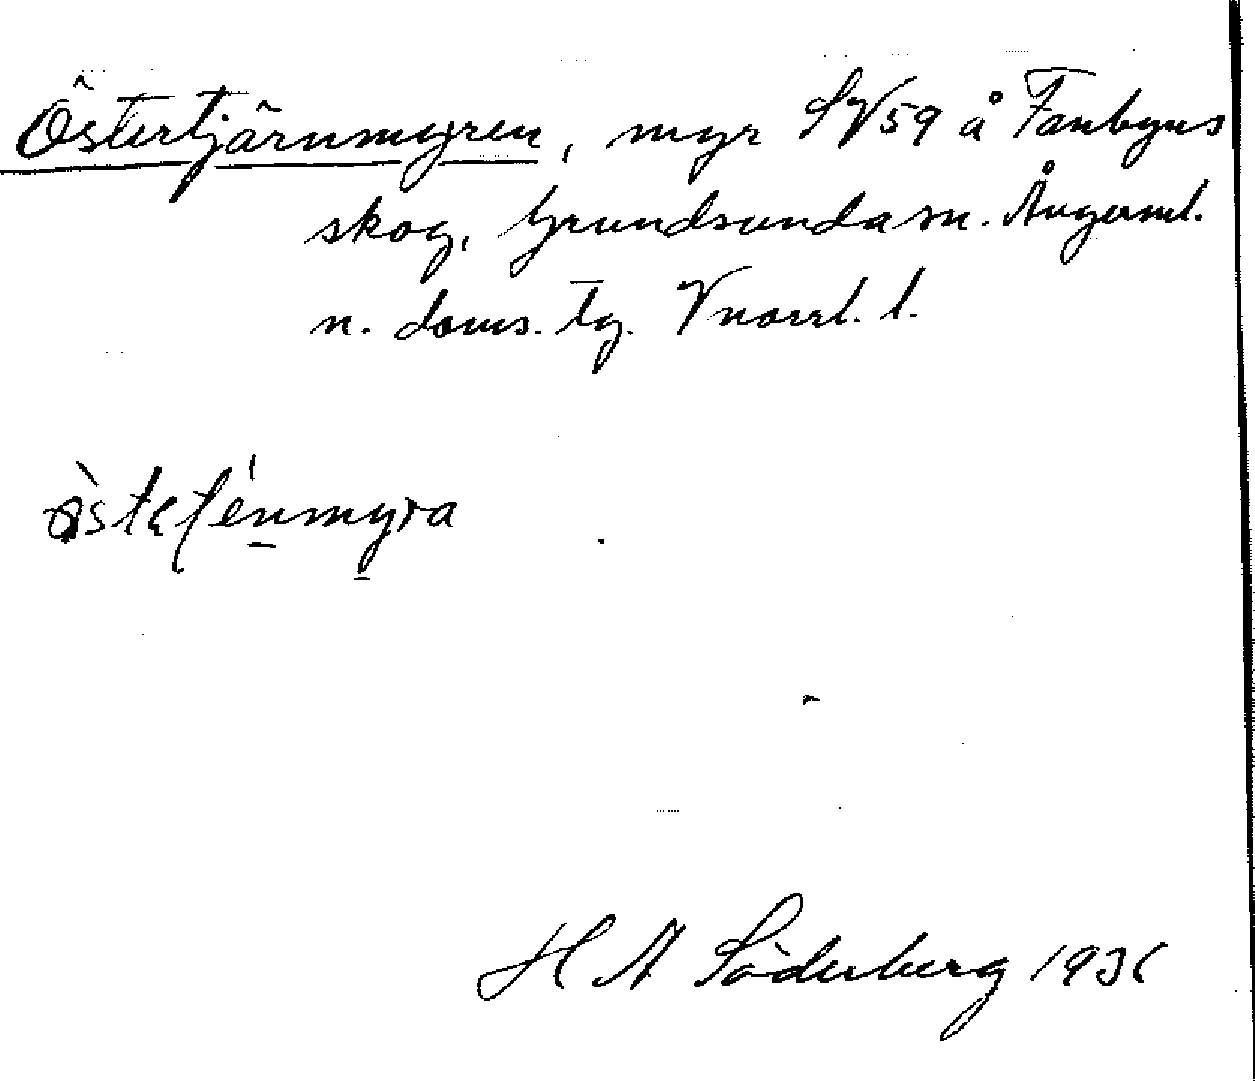 Östertjärnmyren, myr SV59 å Fanbyns
skog, Grundsunda sn. Ångerml.
n. doms. tg. Vnorrl. l.
H A Söderberg 193